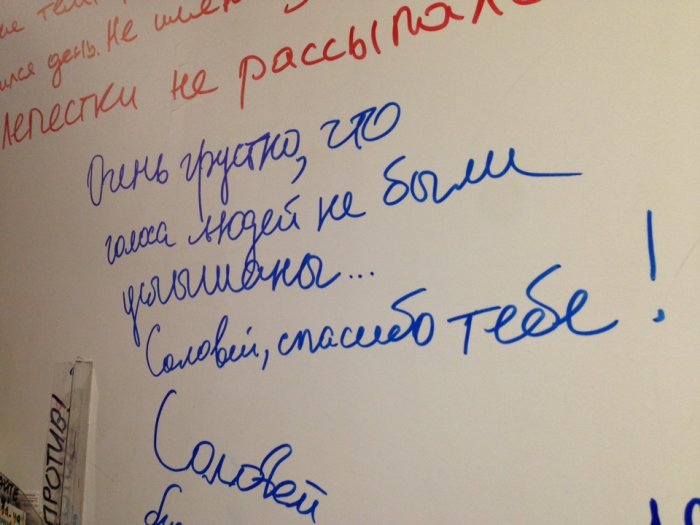 ился день. Не
лепестки не рассыпал
Очень грустно, что
голоса людей не были
услышаны...
Соловей, спасибо тебе!
Соловей
ПРОТИВ!